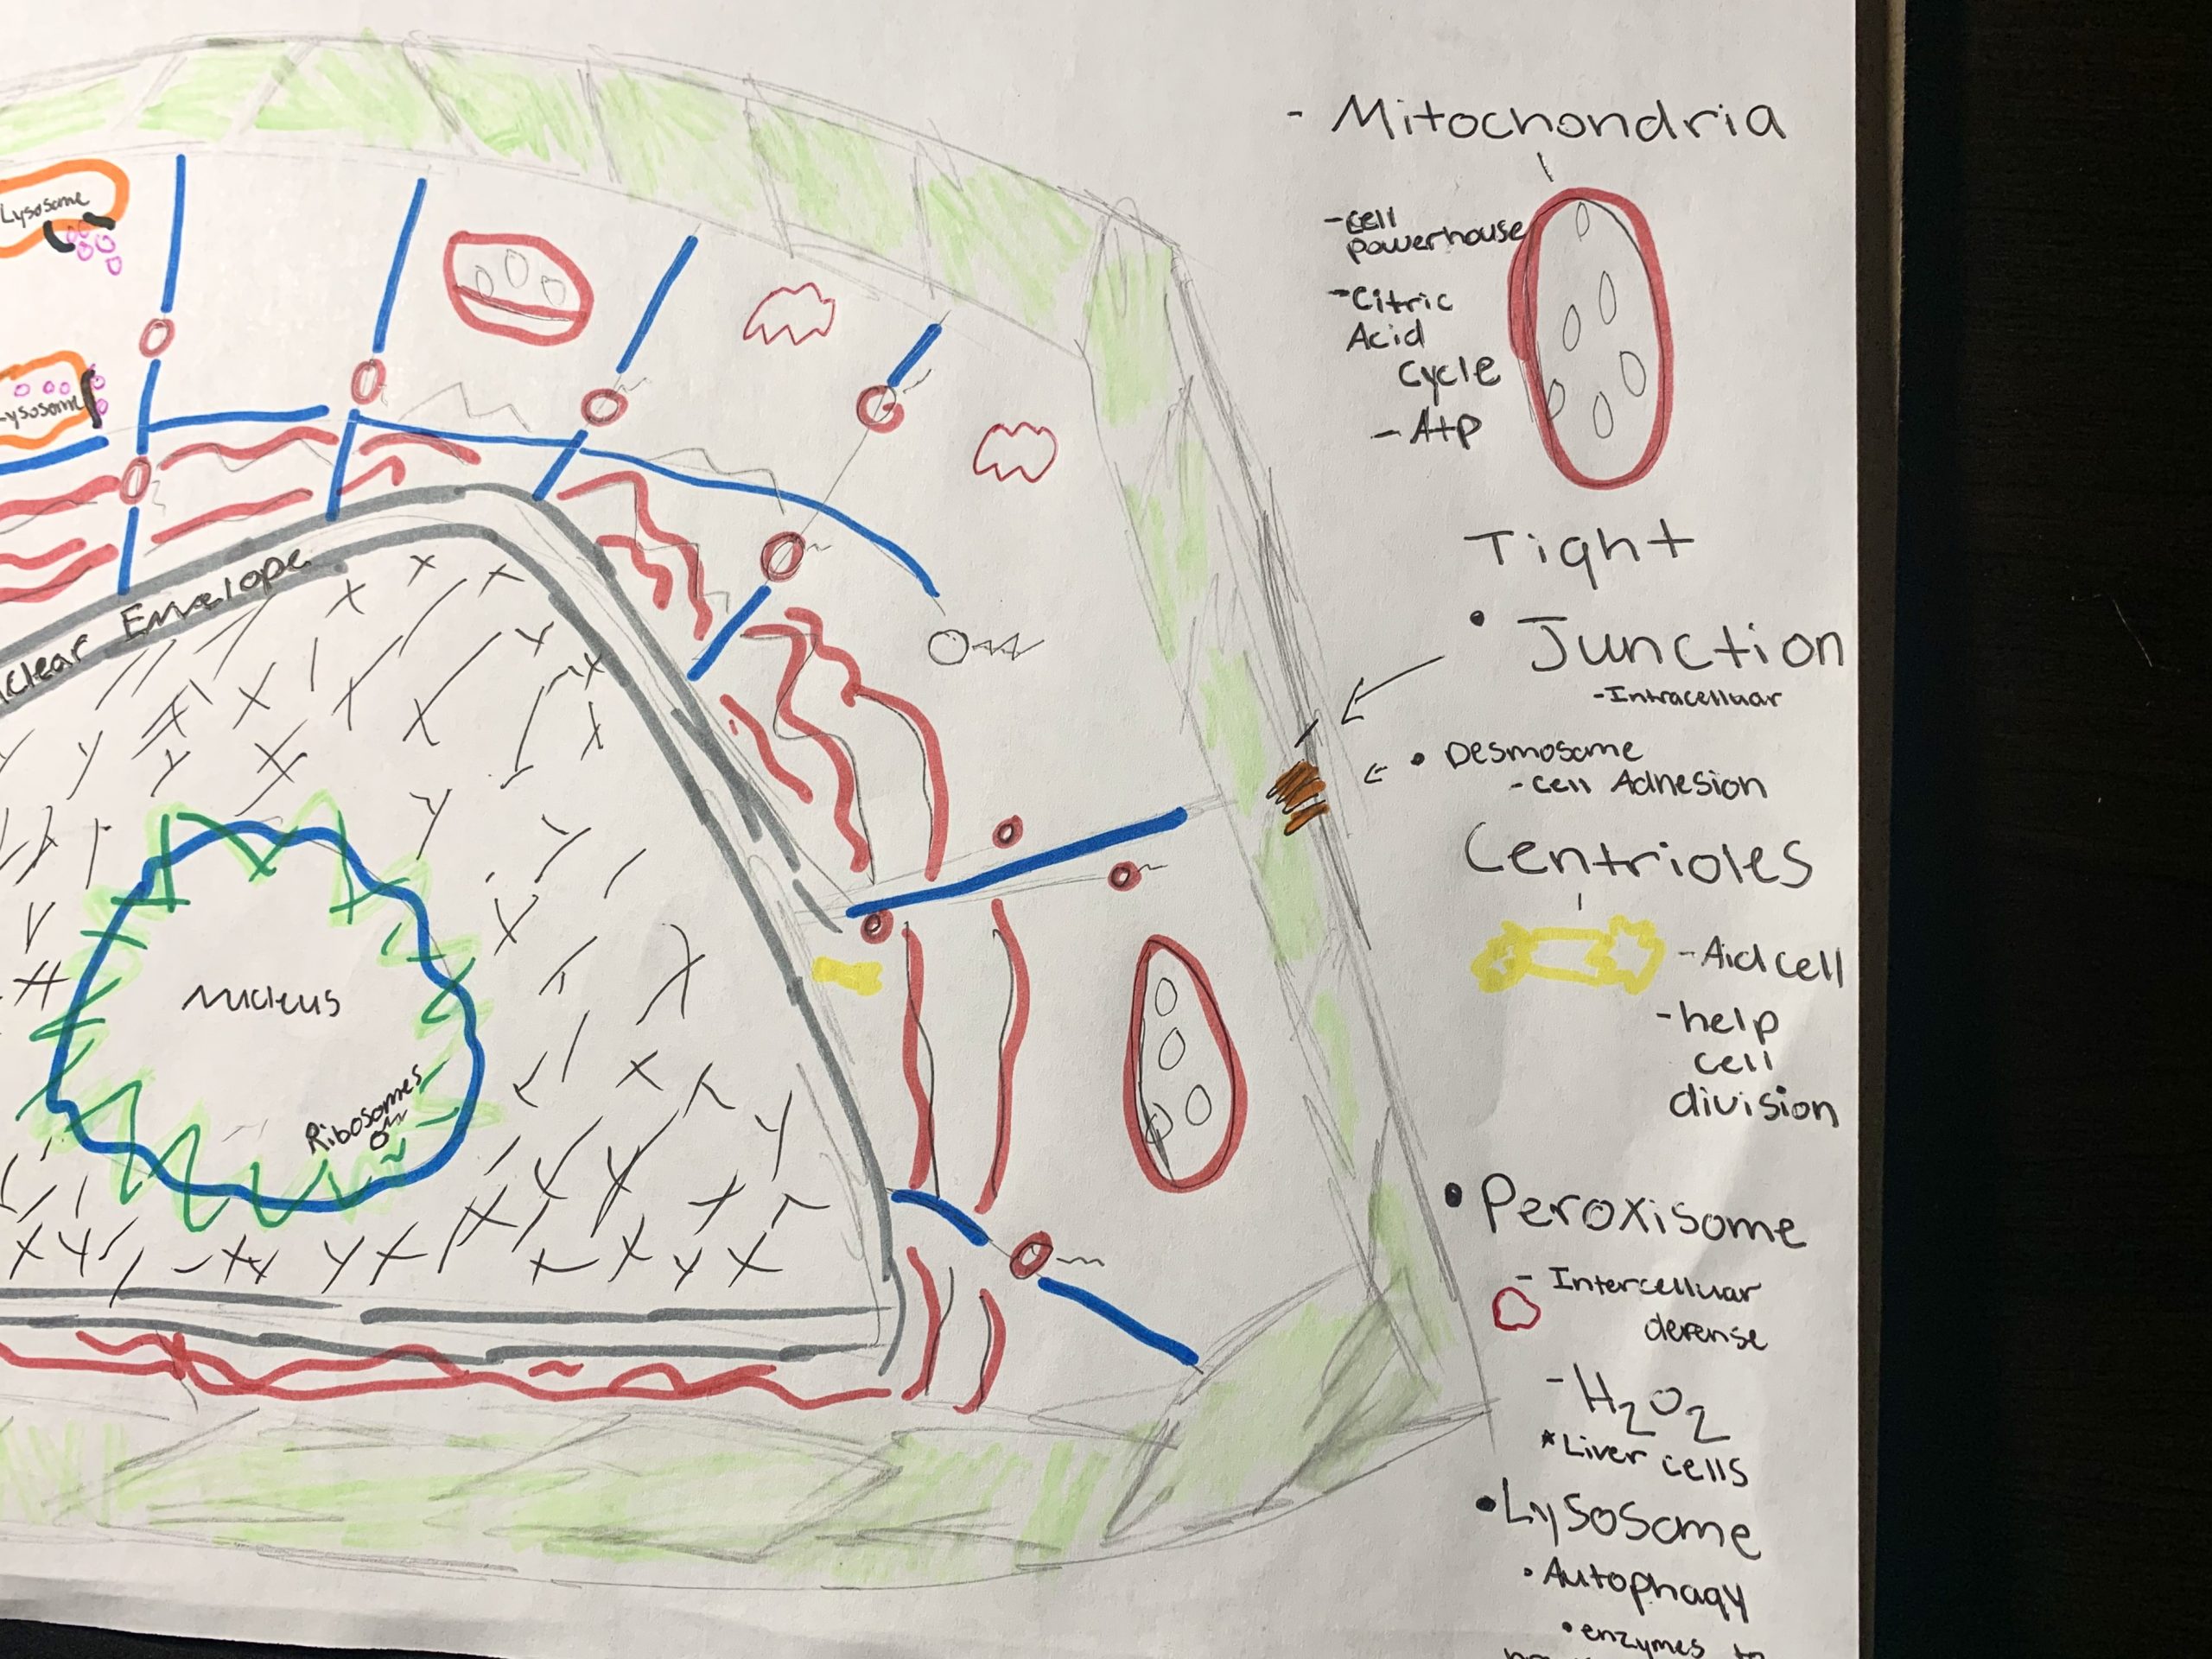 Lysosome
Lysosome
clear Envelope
Nucleus
Ribosomes
- Mitochondria
- cell
powerhouse
- Citric
Acid
Cycle
- Atp
Tight
• Junction
- Intracelluar
• Desmosome
- cell Adhesion
Centrioles
- Aid cell
- help
cell
division
• Peroxisome
- Intercelluar
defense
- H2O2
* Liver cells
• Lysosome
• Autophagy
• enzymes to